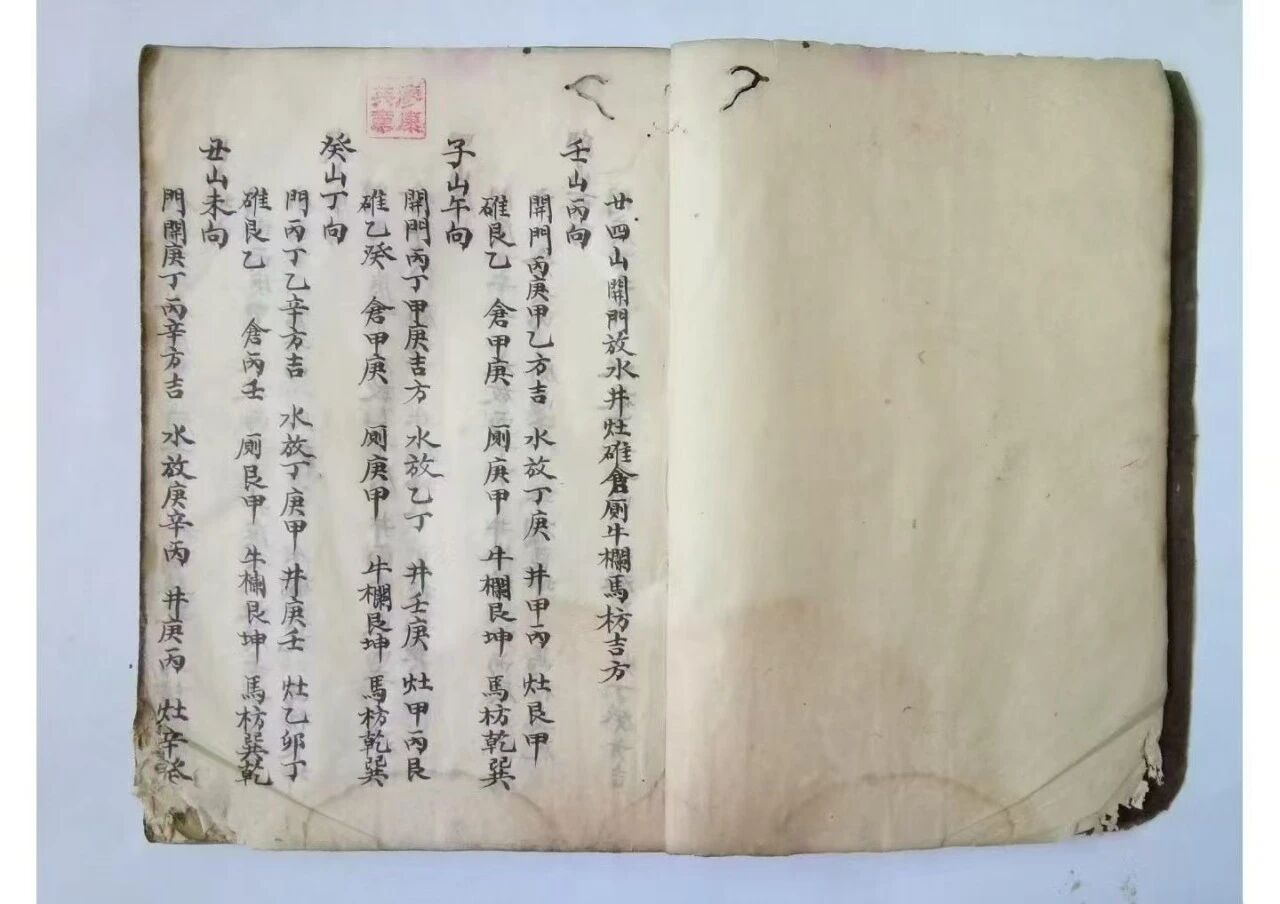 廿四山開門放水井灶碓倉厕牛欄馬枋吉方
壬山丙向
開門丙庚甲乙方吉 水放丁庚 井甲丙 灶艮甲
碓艮乙 倉甲庚 厕庚甲 牛欄艮坤 馬枋乾巽
子山午向
開門丙丁甲庚吉方 水放乙丁 井壬庚 灶甲丙艮
碓乙癸 倉甲庚 厕庚甲 牛欄艮坤 馬枋乾巽
癸山丁向
門丙丁乙辛方吉 水放丁庚甲 井庚壬 灶乙卯丁
碓艮乙 倉丙壬 厕艮甲 牛欄艮坤 馬枋巽乾
丑山未向
門開庚丁丙辛方吉 水放庚辛丙 井庚丙 灶辛癸
廖康
英章